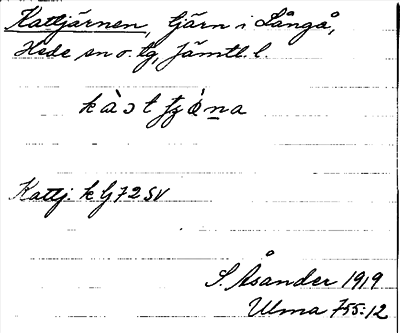 Kattjärnen, tjärn i Långå,
Hede sn o. tg, Jämtl. l.
Kattj. k lj 72 SV
S. Åsander 1919
Ulma 755:12